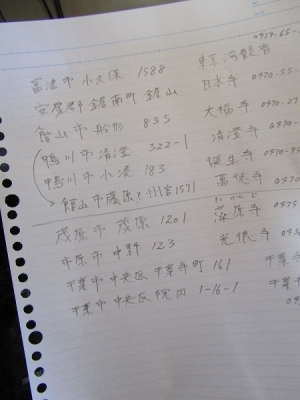 0439-65-
富津市小久保 1588 東京湾観音
安房郡鋸南町鋸山 日本寺 0470-55-
館山市船形 835 大福寺 0470-27-
鴨川市清澄 322-1 清澄寺 0470-
鴨川市小湊 183 誕生寺 0470-
館山市 1571 0470-
茂原市茂原 1201 藻原寺 0475-
市原市 123 光徳寺
千葉市中央区千葉寺町 161 千葉寺
千葉市中央区院内 1-16-1 千葉